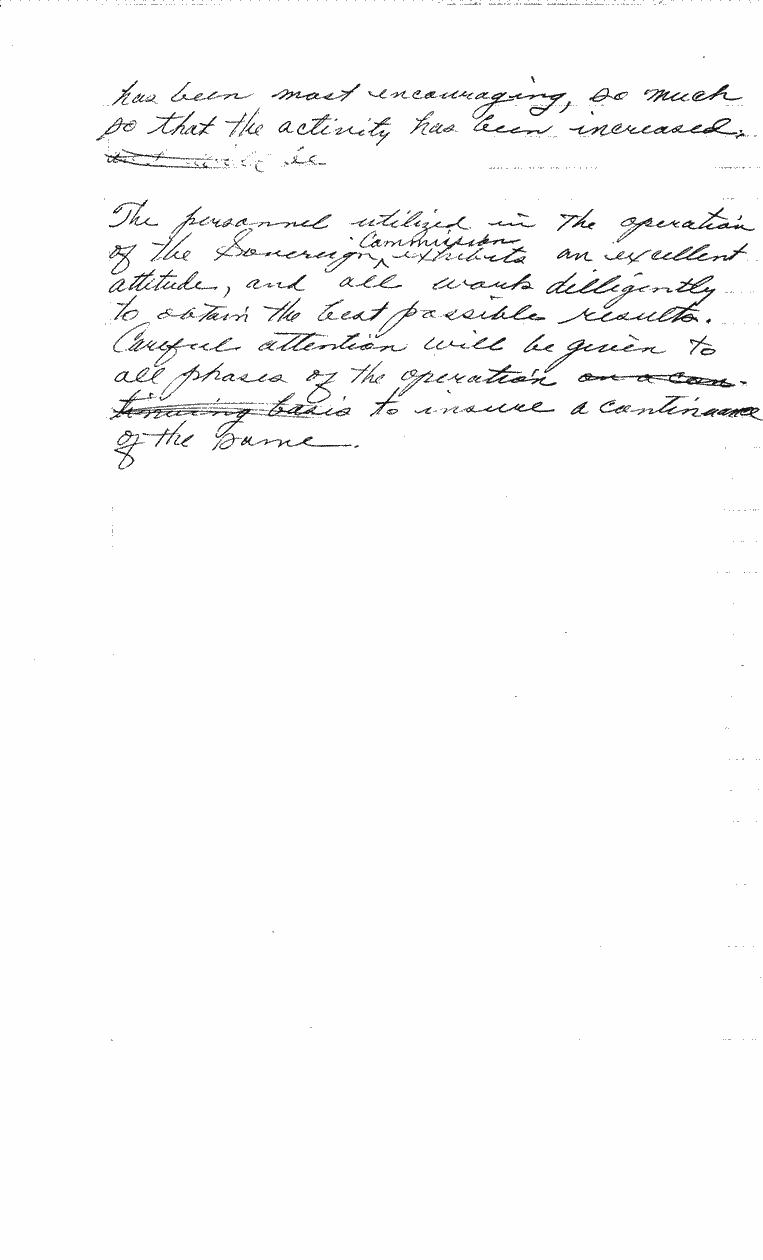 has been most encouraging, so much
so that the activity has been increased.
The personnel utilized in the operation
of the Sovereign Commission exhibits an excellent
attitude, and all work dilligently
to obtain the best possible results.
Careful attention will be given to
all phases of the operation on a con-
tinuing basis to insure a continuance
of the same.